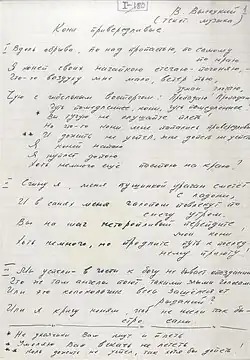 I-180
В. Высоцкий
(текст, музыка)
Кони привередливые
I Вдоль обрыва, по над пропастью, по самому
по краю
Я коней своих нагайкою стегаю - погоняю,
Что-то воздуху мне мало, ветер пью,
туман глотаю,
Чую с гибельным восторгом: Пропадаю, Пропадаю
* Чуть помедленнее, кони, чуть помедленнее
Вы тугую не слушайте плеть
Но что-то кони мне попались привередливые
** И дожить не успел, мне допеть не успеть
Я коней напою
Я куплет допою
Хоть немного ещё постою на краю?
II Сгину я, меня пушинкой ураган сметёт
с ладони,
И в санях меня галопом повлекут по
снегу утром.
Вы на шаг неторопливый перейдите
мои кони!
Хоть немного, но продлите путь к послед-
нему приюту!
III Мы успели - в гости к богу не бывает опозданий
Что ж там ангелы поют такими злыми голосами
Или это колокольчик весь зашёлся от
рыданий?
Или я кричу коням, чтоб не несли так бы-
стро, сани
* Не указчики Вам кнут и плеть
* Умоляю Вас вскачь не лететь
** Коль дожить не успел, так хотя бы допеть